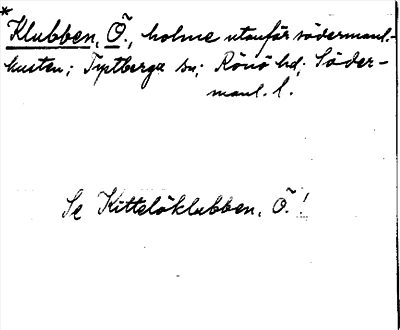 *Klubben, Õ., holme utanför södermanl.-
kusten; Tystberga sn; Rönö hd; Söder-
manl. l.
Se Kittelöklubben, Õ.!